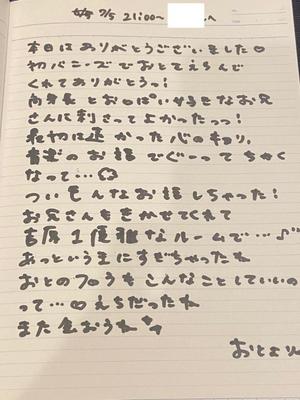 7/5 21:00〜 へ
本日はありがとうございました♡
初バニーズでおとえらんで
くれてありがとうっ！
高身長とおっぱい好きなお兄
さんに刺さってよかったっっ！
最初は遠かった心のキョリ、
音楽のお話でぐーってちかく
なって…
ついそんなお話しちゃった！
お兄さんをきかせてくれて
吉原1優雅なルームで…♪
あっというまにすぎちゃったね
おとのフロウもこんなことしていいの
って…♡えちだったね
また会おうね
おとより